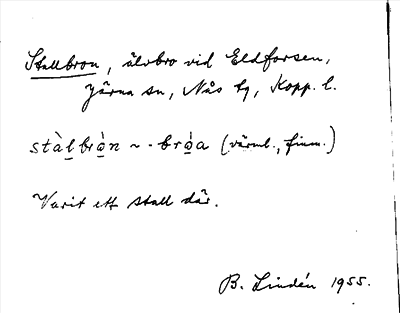 Stallbron, älvbro vid Eldforsen,
Järna sn, Nås tg, Kopp. l.
stàl̲brò̲n ~ -brò̲a (värml., finn.)
Varit ett stall där.
B. Lindén 1955.